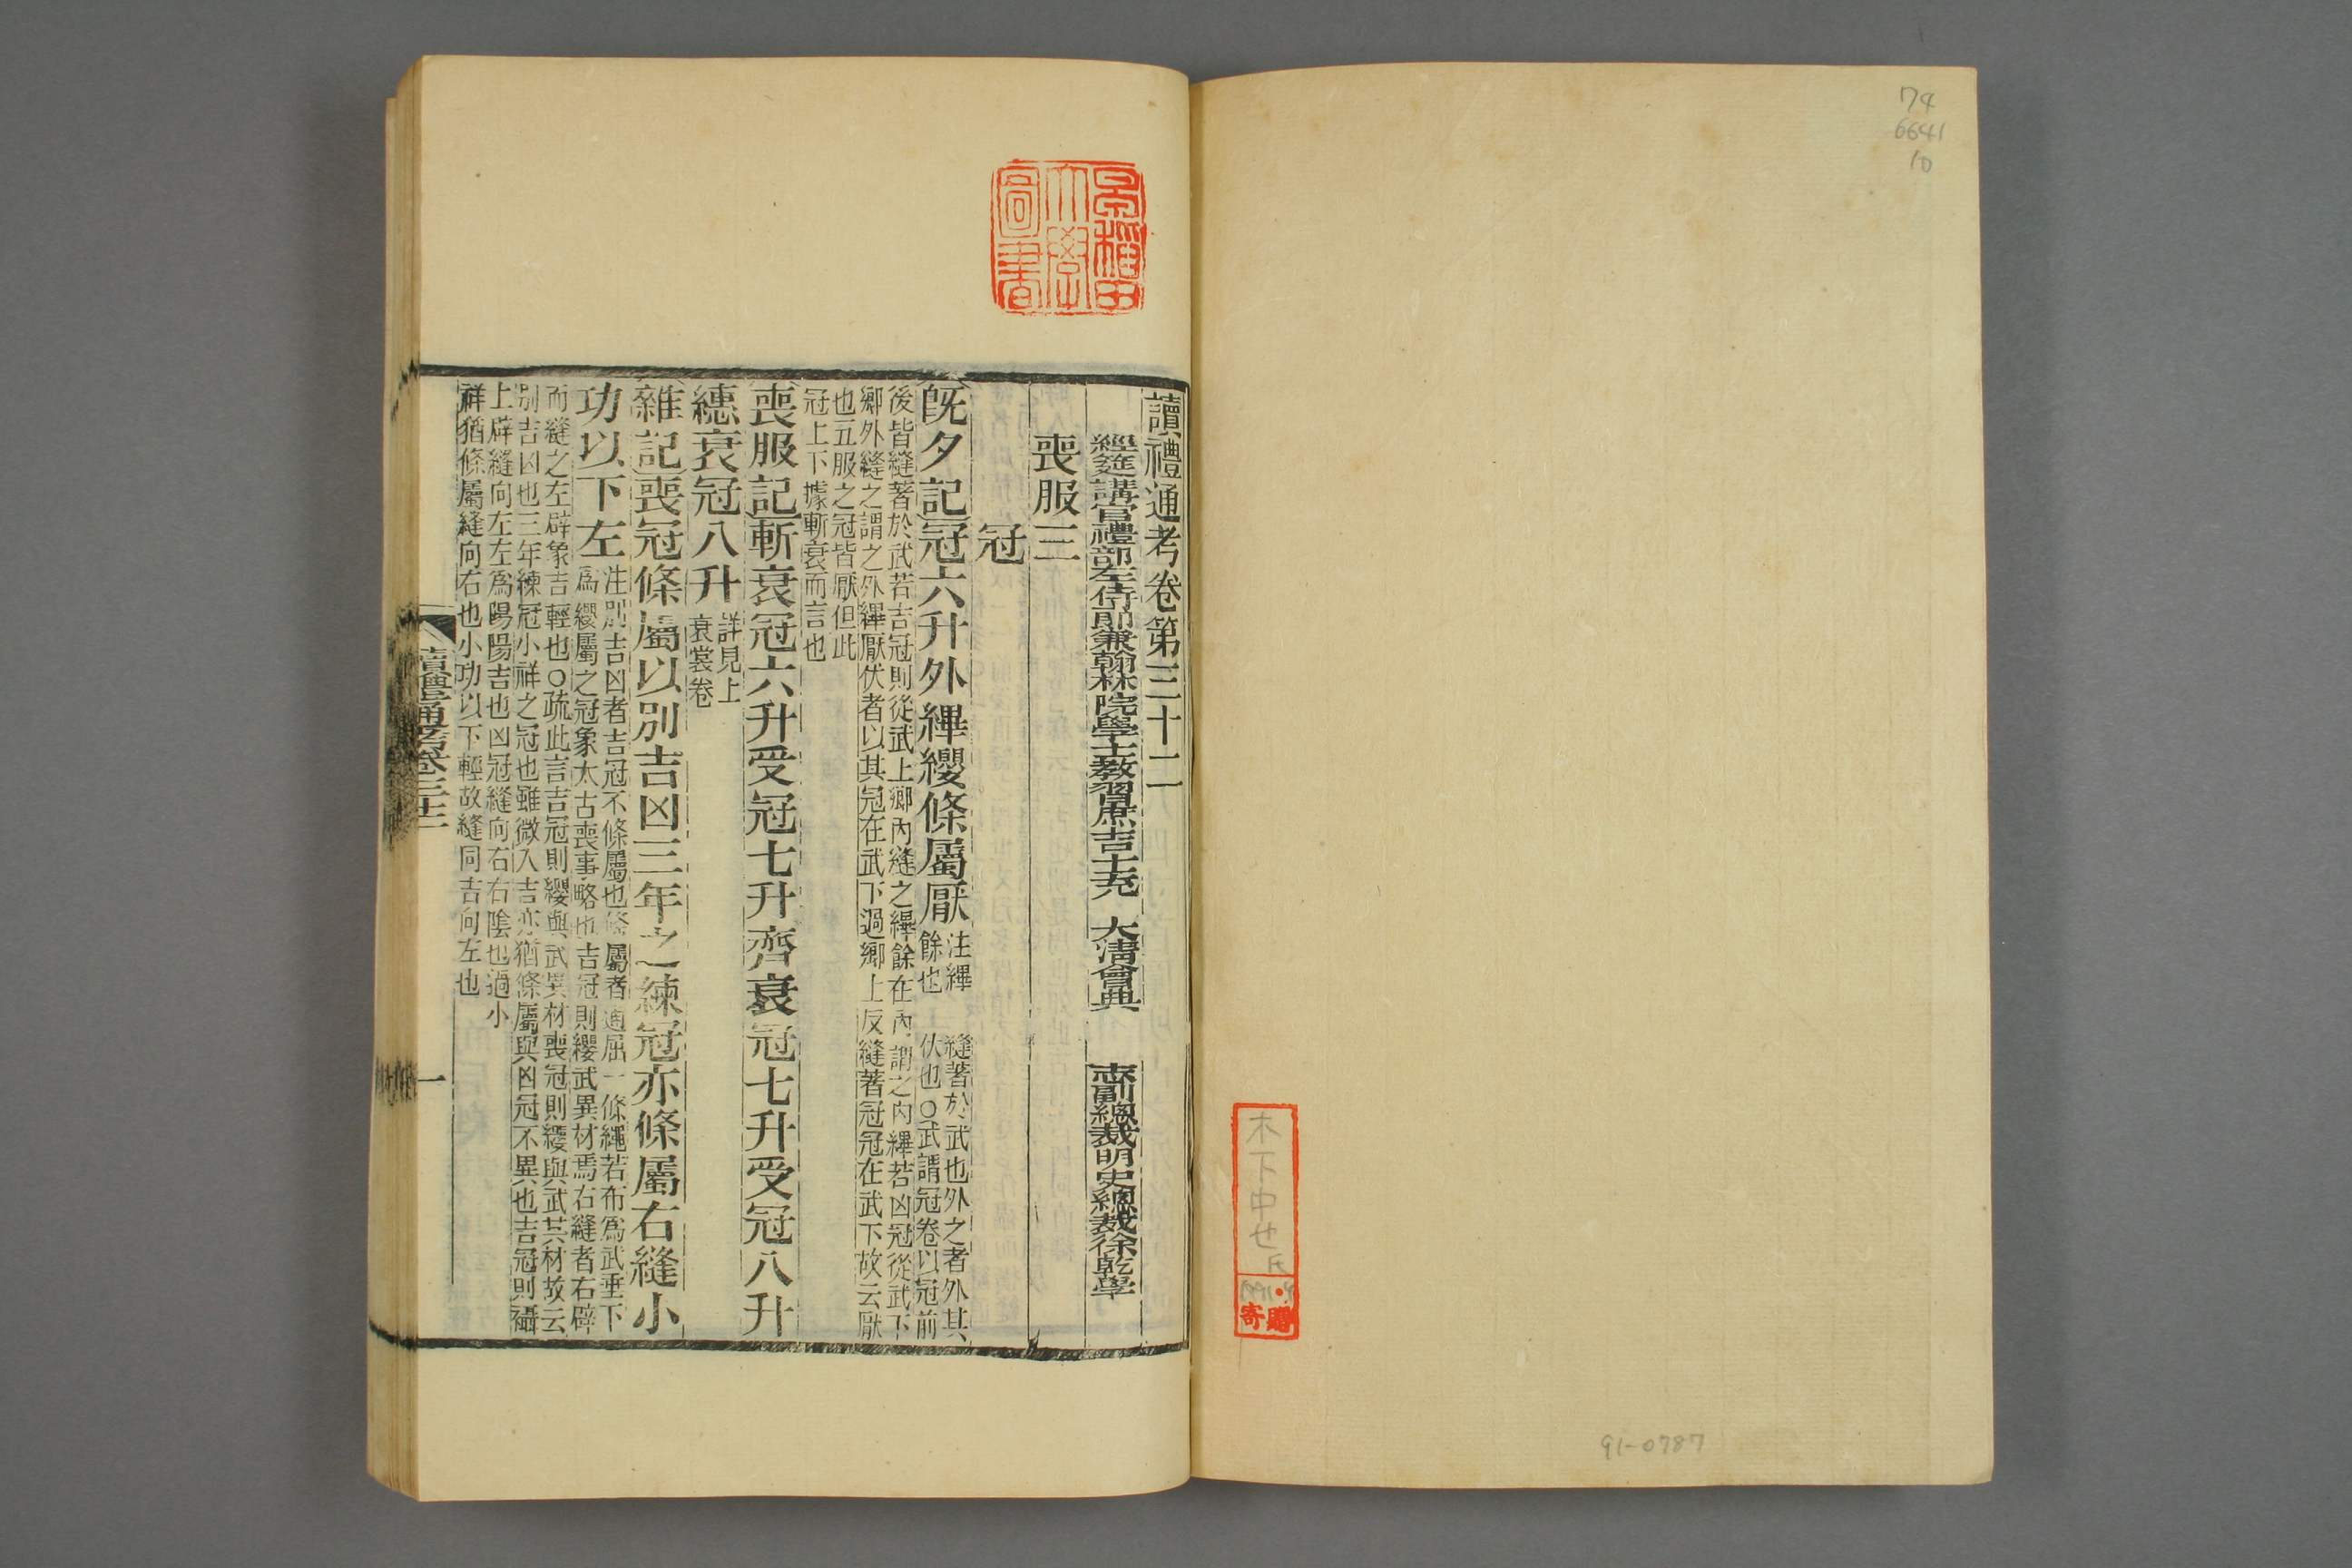 74
6641
10
早稲田大學圖書
木下中也氏
寄贈
91-0787
讀禮通考卷第三十二
經筵講官禮部左侍郎兼翰林院學士教習庶吉士充 大清會典 志副總裁明史總裁徐乾學
喪服三
冠
旣夕記冠六升外縪纓條屬厭
注縪縫著於武也外之者外其
餘也 伏也○武謂冠卷以冠前
後皆縫著於武若吉冠則從武上鄉內縫之縪餘在內謂之內縪若凶冠從武下
鄉外縫之謂之外縪厭伏者以其冠在武下過鄉上反縫著冠冠在武下故云厭
也五服之冠皆厭但此
冠上下據斬衰而言也
喪服記斬衰冠六升受冠七升齊衰冠七升受冠八升
繐衰冠八升
詳見上
衰裳卷
雜記喪冠條屬以別吉凶三年之練冠亦條屬右縫小
功以下左
注別吉凶者吉冠不條屬也條屬者通屈一條繩若布爲武垂下
爲纓屬之冠象太古喪事略也吉冠則纓武異材焉右縫者右辟
而縫之左辟象吉輕也○疏此言吉冠則纓與武異材喪冠則纓與武共材故云
別吉凶也三年練冠小祥之冠也雖微入吉亦猶條屬與凶冠不異也吉冠則襵
上辟縫向左左爲陽陽吉也凶冠縫向右右陰也過小
祥猶條屬縫向右也小功以下輕故縫同吉向左也
讀禮通考卷三十二
一